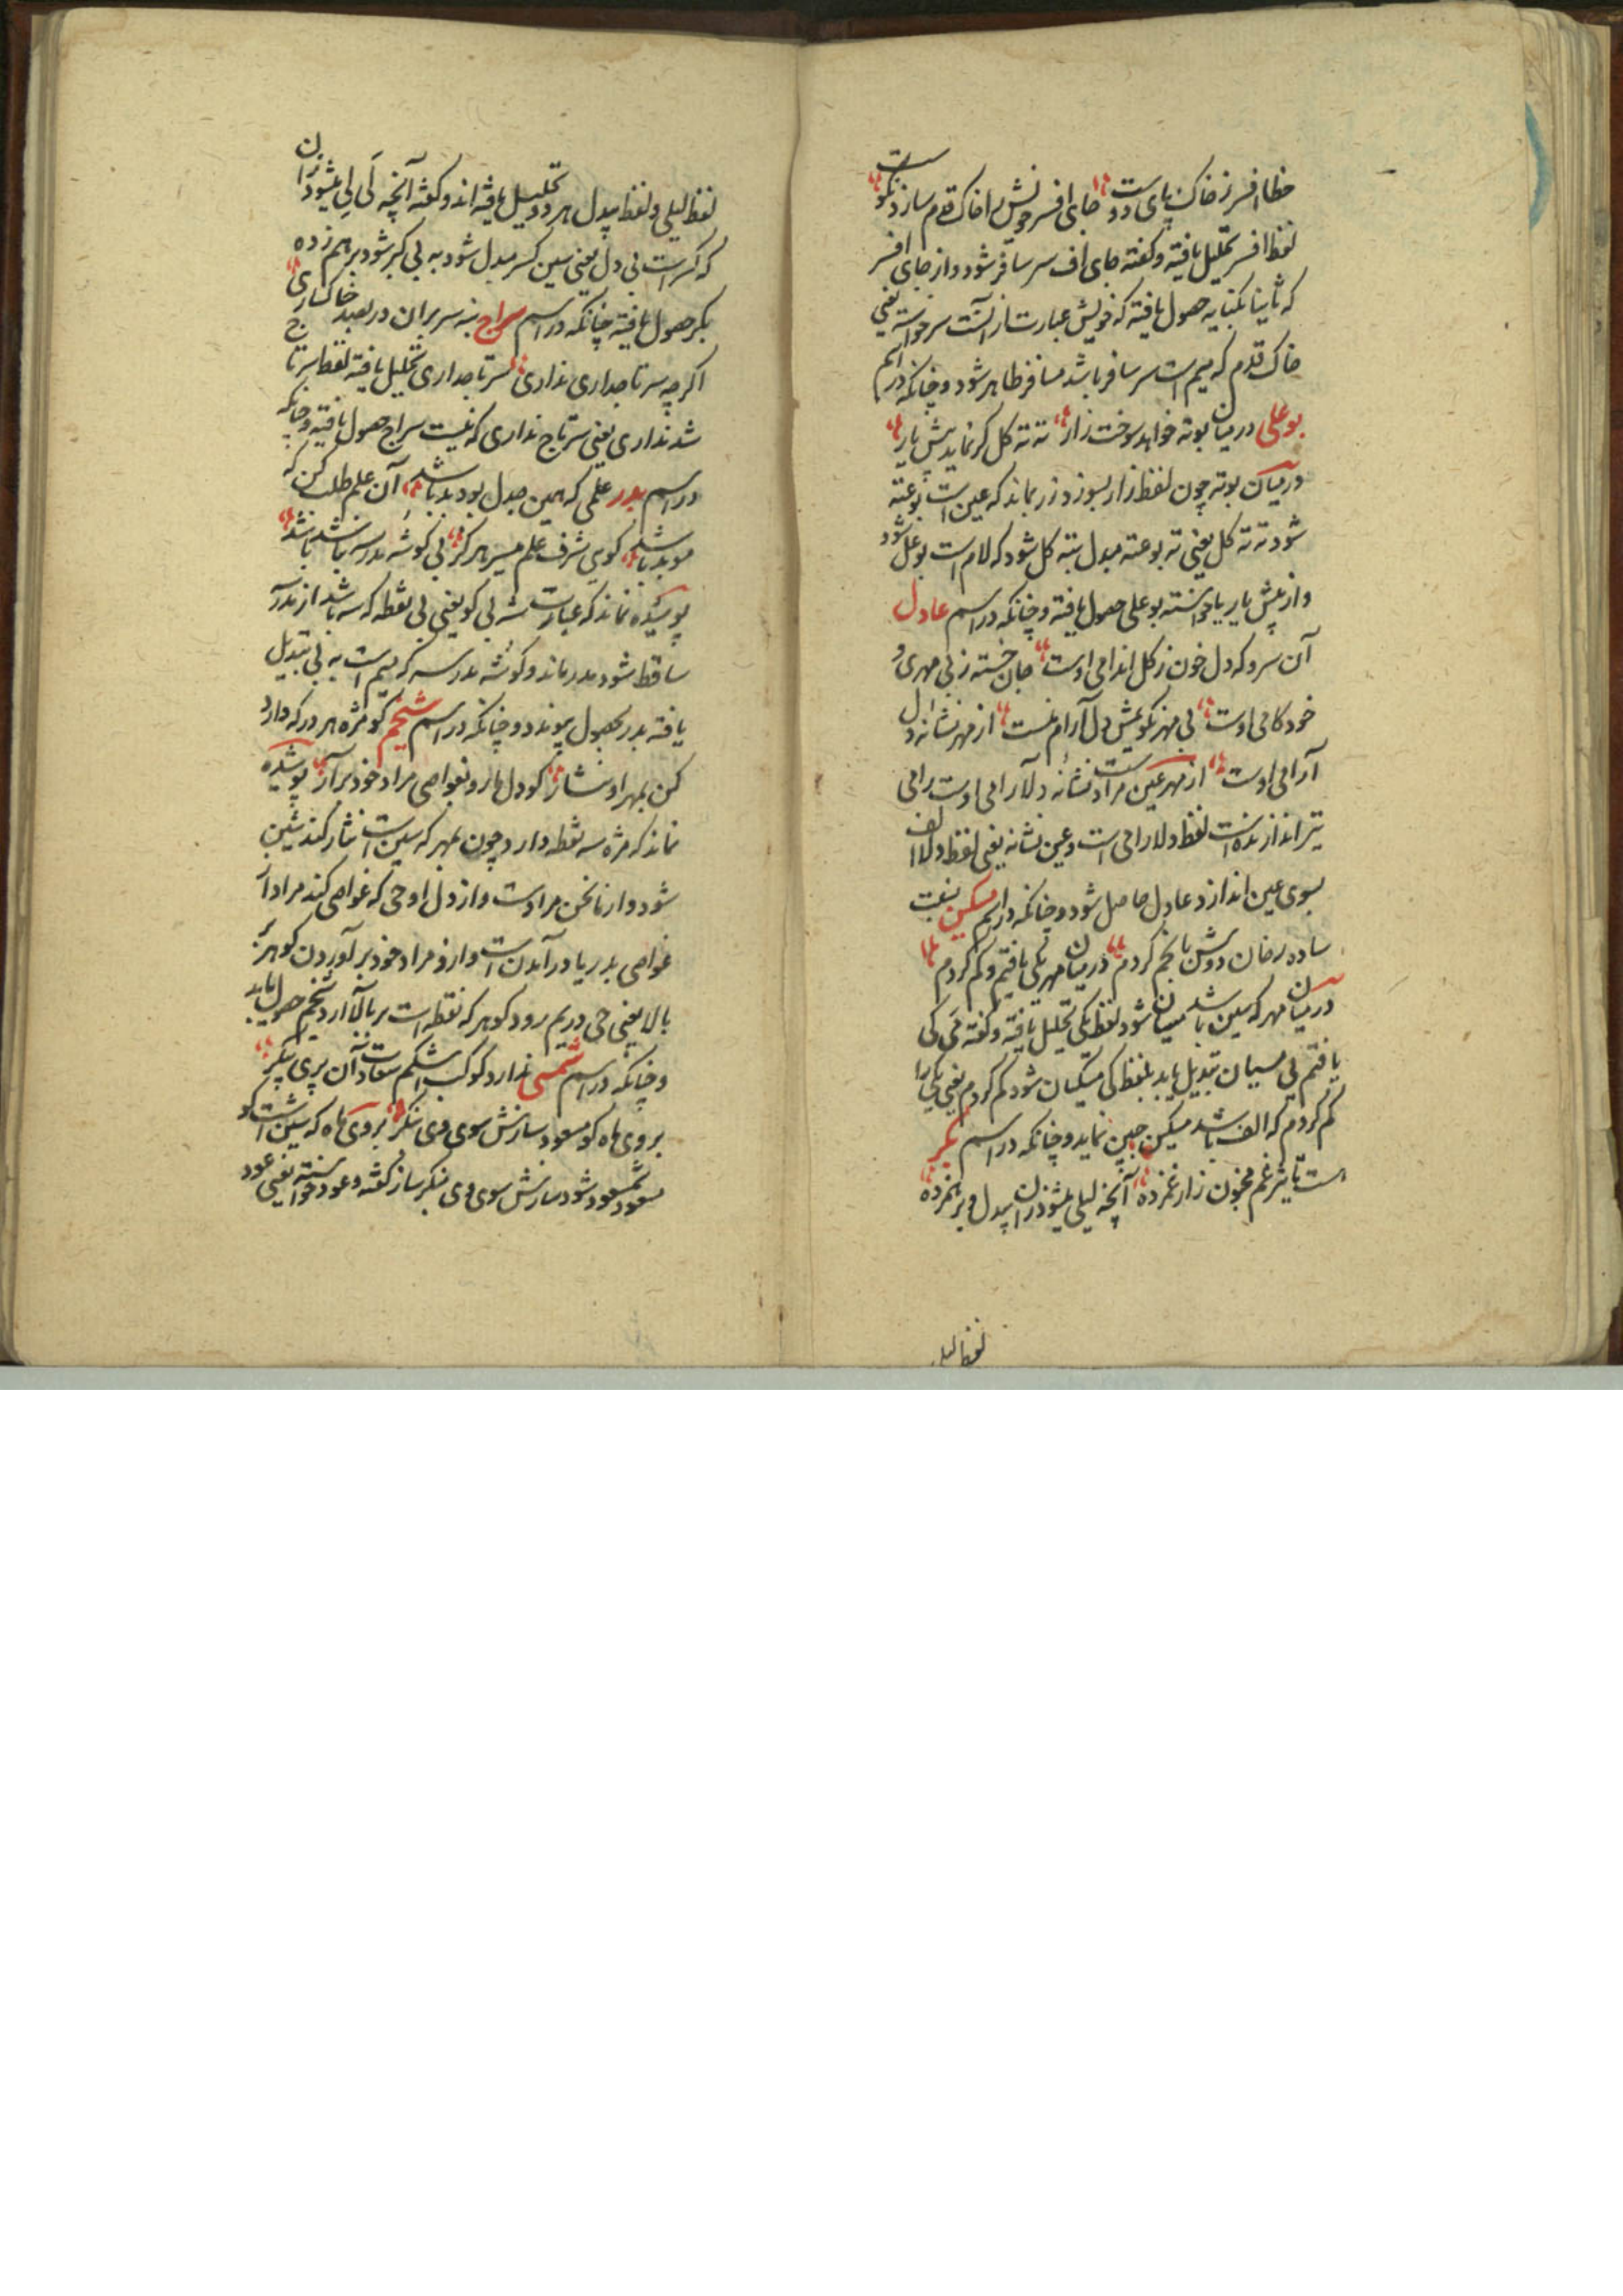 خط افسر ز خاک پای دوست جای افسر خویش را خاک قدم سازد نکوست
لفظ افسر تحلیل یافته و گفته جای اف سر سا فر شود و از جای افسر
که ثانیا بکنایه حصول یافته که خویش عبارت از آنست سر خواسته یعنی
خاک قدم که میم است سر سافر باشد مسافر ظاهر شود و چنانکه در اسم
بوعلی در میان بوته خواهد سوخت زار ته ته کل کر نماید پیش یار
در میان بوته چون لفظ زار بسوزد زر بماند که عین است بوعته
شود ته ته کل یعنی ته بوعته مبدل بته کل شود که لام است بوعل شود
و از پیش یار یا خواسته بوعلی حصول یافته و چنانکه در اسم عادل
آن سرو که دل خون ز کل اندامی اوست جان خسته ز بی مهری و
خود کامی اوست بی مهر نکویمش دل آرام نیست از مهر نشانه دل
آرامی اوست از مهر عین مراد است نشانه دلارامی اوست رامی
تیر اندازنده است لفظ دلارامی است و عین نشانه یعنی لفظ دلا الف
بسوی عین اندازد عادل حاصل شود و چنانکه در اسم مسکین نسبت
ساده رخان دوش بانجم کردم در میان مهر یکی یافتم و کم کردم
در میان مهر که سین باشد میان شود لفظ یکی تحلیل یافته و گفته می کی
یافتم بی مسیان تبدیل یابد بلفظ کی مسکیان شود کم کردم یعنی یکی را
کم کردم که الف باشد مسکین جبین نماید و چنانکه در اسم بکر
است تاثیر غم مجنون زار غمزده آنچه لیلی میشود زان بیدل و برهمزده
لفظ لیلی
لفظ لیلی و لفظ بیدل هر دو تحلیل یافته اند و گفته آنچه لی لی میشود زان
که کسر است بی دل یعنی سین کسر مبدل شود به بی کبر شود برهم زده
بکر حصول یافته چنانکه در اسم سراج نه سر بران در بعید خاکساری
اکرچه سر تاجداری نداری سرتاجداری تحلیل یافته لفظ سر تاج
شد نداری یعنی سرتاج نداری که نیست سراج حصول یافته و چنانکه
در اسم بدر علمی که همین جدل بود بد باشد آن علم طلب کن که
موید باشد کوی شرف علم میسر هرکز بی کوشه مدرسه نباشد باشد
پوشیده نماند که عبارت سه بی کو یعنی بی نقطه که سه باشد از مدرسه
ساقط شود مدر ماند و کوشه مدرسه که میم است به بی تبدیل
یافته بدر بحصول پیوندد و چنانکه در اسم شیخم کو مژه هر در که دارد
کن بمهر او نثار کو دل ما رو بغواصی مراد خود بر آر پوشیده
نماند که مژه سه نقطه دارد چون بمهر که سین است نثار کند شین
شود و از ما نحن مراد است و از دل او حی که غواصی کند مراد از
غواصی بدریا در آمدن است و از و مراد خود بر آوردن کوهر بر
بالا یعنی حی در یم رود کوهر که نقطه است بر بالا آرد شیخم حصول یابد
و چنانکه در اسم شمسی ندارد کوکب اشکم سعادت آن پری پیکر
بروی ماه کو مسعود سازش سوی وی بنکر بروی ماه که سین است
مسعود شمسعود شود سازش سوی وی بنکر ساز کفته و عود خواسته یعنی عود